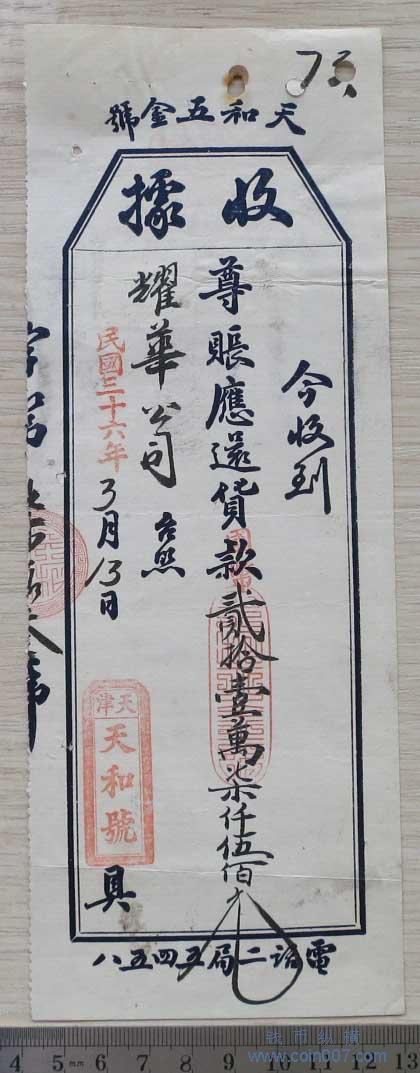 天和五金號
收據
今收到
尊賬應還貨款貳拾壹萬柒仟伍佰
耀華公司 台照
民國三十六年3月13日
天津
天和號
具
電話二局五四五八
钱币纵横
www.coin007.com
4 5 6 7 8 9 10 11 12 13